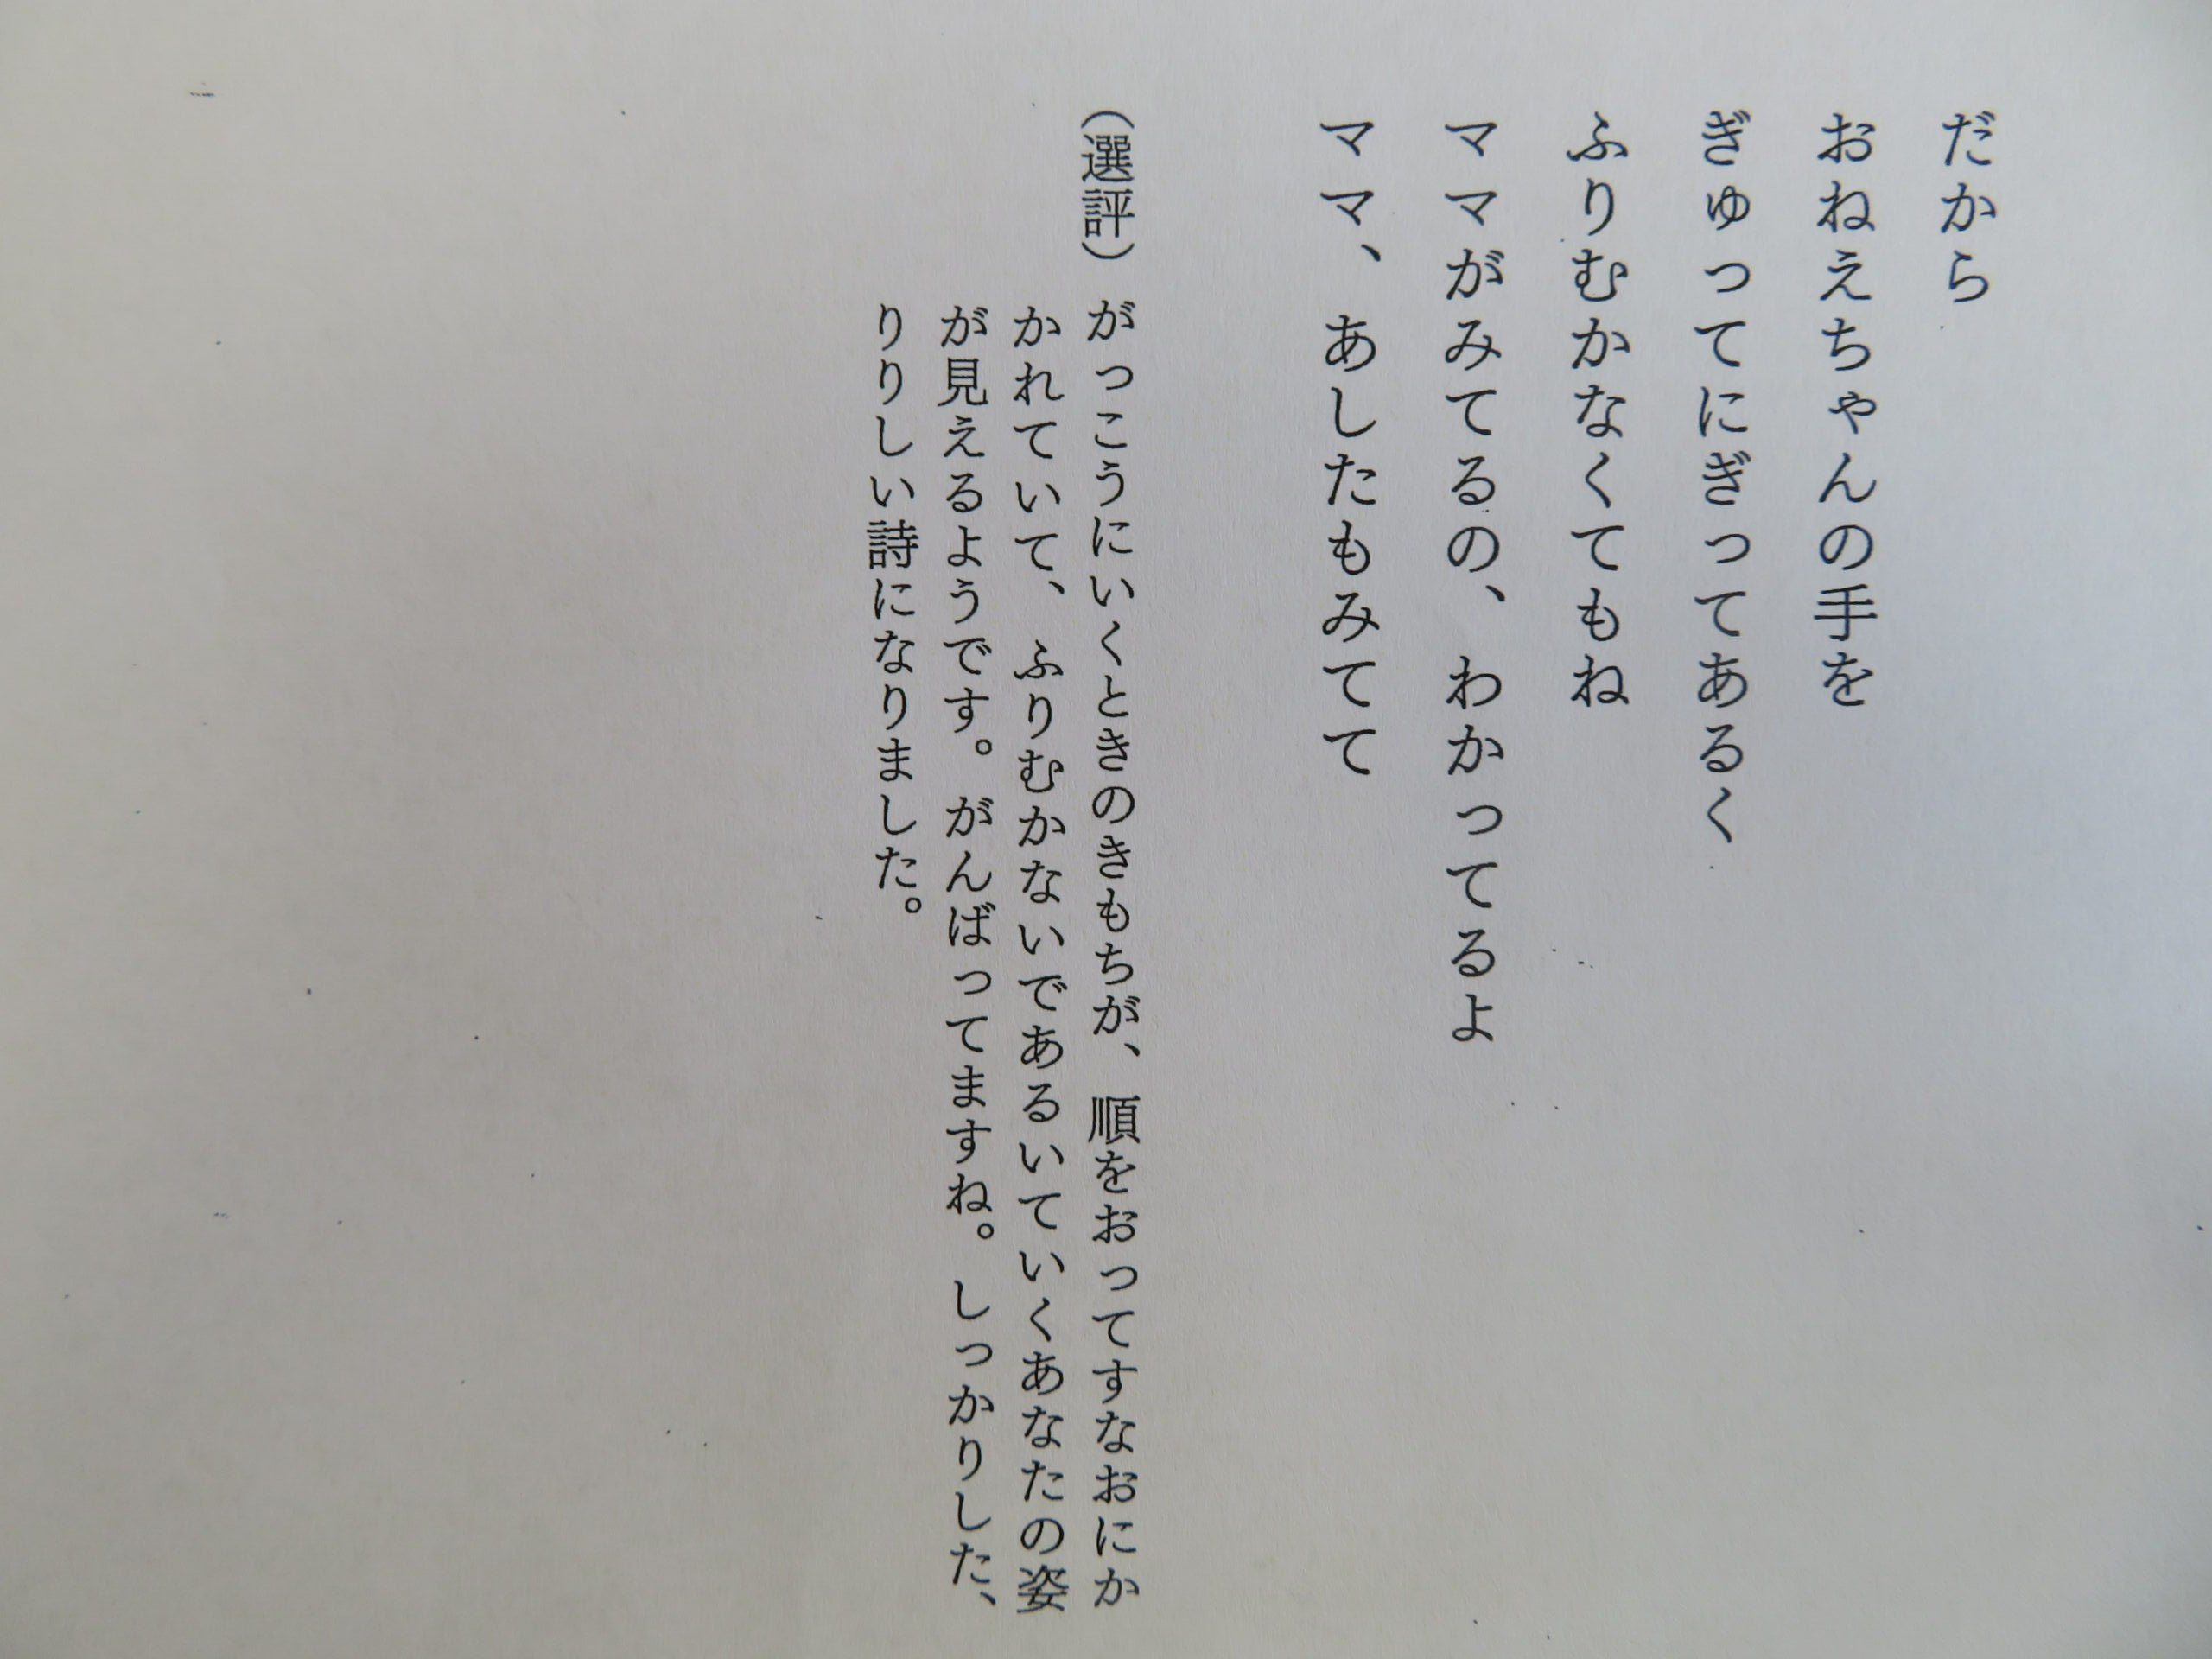 だから
おねえちゃんの手を
ぎゅってにぎってあるく
ふりむかなくてもね
ママがみてるの、わかってるよ
ママ、あしたもみてて
（選評）がっこうにいくときのきもちが、順をおってすなおにか
かれていて、ふりむかないであるいていくあなたの姿
が見えるようです。がんばってますね。しっかりした、
りりしい詩になりました。